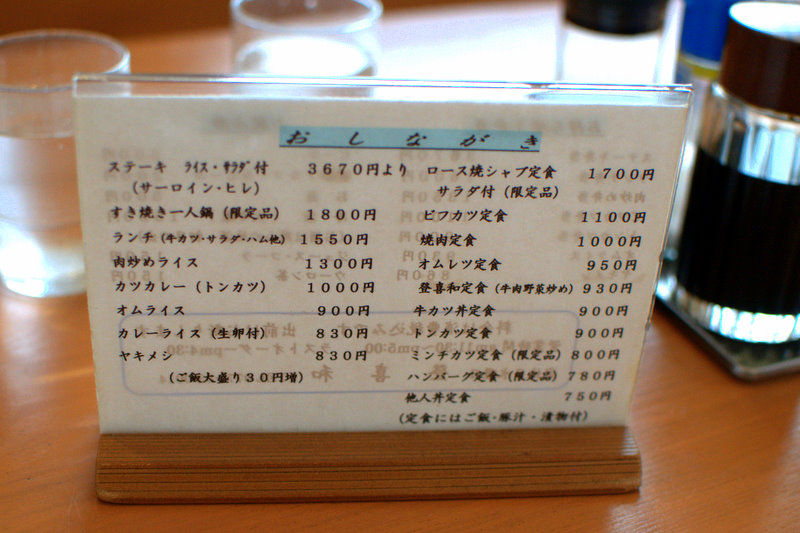 おしながき
ステーキ ライス・サラダ付 3670円より
(サーロイン・ヒレ)
すき焼き一人鍋(限定品) 1800円
ランチ(牛カツ・サラダ・ハム他) 1550円
肉炒めライス 1300円
カツカレー(トンカツ) 1000円
オムライス 900円
カレーライス(生卵付) 830円
ヤキメシ 830円
(ご飯大盛り30円増)
ロース焼シャブ定食 1700円
サラダ付(限定品)
ビフカツ定食 1100円
焼肉定食 1000円
オムレツ定食 950円
登喜和定食(牛肉野菜炒め) 930円
牛カツ丼定食 900円
トンカツ定食 900円
ミンチカツ定食(限定品) 800円
ハンバーグ定食(限定品) 780円
他人丼定食 750円
(定食にはご飯・豚汁・漬物付)